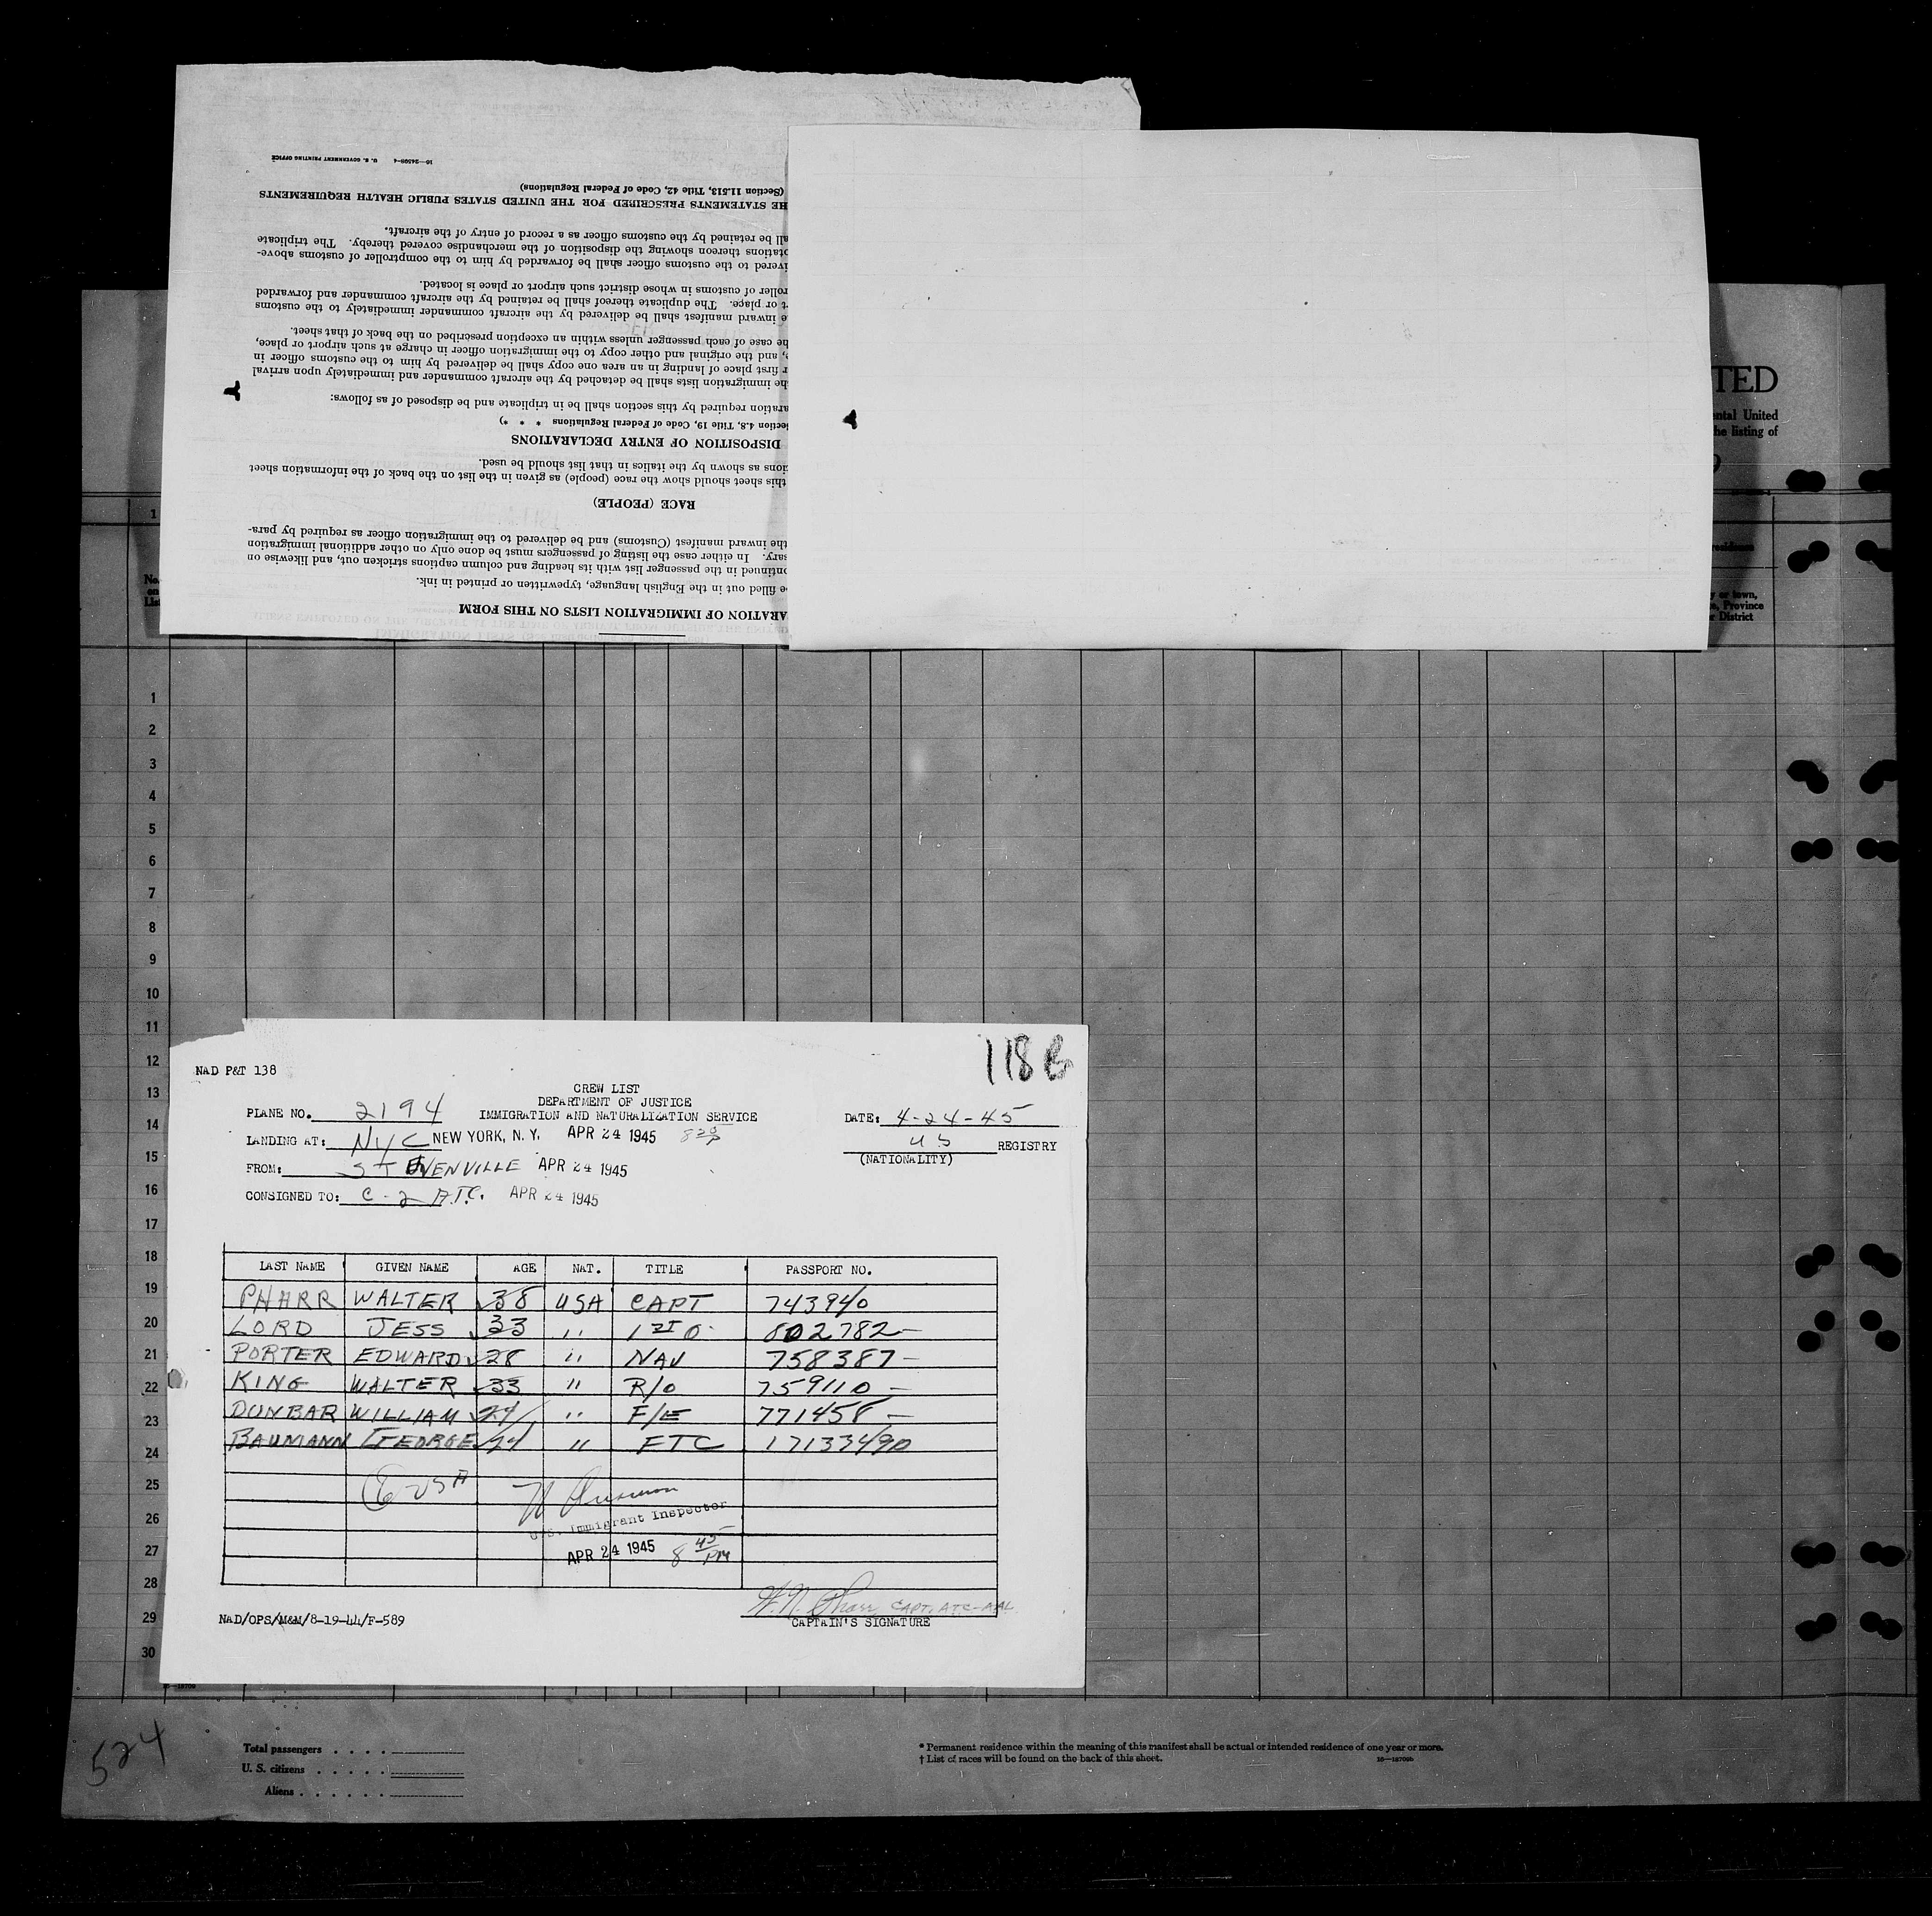 16—24598-4 U. S. GOVERNMENT PRINTING OFFICE
(Section 11.513, Title 42, Code of Federal Regulations)
HE STATEMENTS PRESCRIBED FOR THE UNITED STATES PUBLIC HEALTH REQUIREMENTS
all be retained by the customs officer as a record of entry of the aircraft.
otations thereon showing the disposition of the merchandise covered thereby. The triplicate
ivered to the customs officer shall be forwarded by him to the comptroller of customs above-
roller of customs in whose district such airport or place is located.
t or place. The duplicate thereof shall be retained by the aircraft commander and forwarded
e inward manifest shall be delivered by the aircraft commander immediately to the customs
he case of each passenger unless within an exception prescribed on the back of that sheet.
e, and the original and other copy to the immigration officer in charge at such airport or place,
r first place of landing in an area one copy shall be delivered by him to the customs officer in
he immigration lists shall be detached by the aircraft commander and immediately upon arrival
aration required by this section shall be in triplicate and be disposed of as follows:
ection 4.8, Title 19, Code of Federal Regulations * * *)
DISPOSITION OF ENTRY DECLARATIONS
tions as shown by the italics in that list should be used.
this sheet should show the race (people) as given in the list on the back of the information sheet
RACE (PEOPLE)
the inward manifest (Customs) and be delivered to the immigration officer as required by para-
sary. In either case the listing of passengers must be done only on other additional immigration
ontinued in the passenger list with its heading and column captions stricken out, and likewise on
e filled out in the English language, typewritten or printed in ink.
ARATION OF IMMIGRATION LISTS ON THIS FORM
TED
ental United
he listing of
1
No.
on
List
residence
y or town,
e, Province
r District
1
2
3
4
5
6
7
8
9
10
11
12
13
14
15
16
17
18
19
20
21
22
23
24
25
26
27
28
29
30
118 B
NAD P&T 138
CREW LIST
DEPARTMENT OF JUSTICE
IMMIGRATION AND NATURALIZATION SERVICE
PLANE NO. 2194
DATE: 4-24-45
LANDING AT: NYC NEW YORK, N. Y. APR 24 1945
US REGISTRY
(NATIONALITY)
FROM: STEVENVILLE APR 24 1945
CONSIGNED TO: C-2 A.T.C. APR 24 1945
LAST NAME GIVEN NAME AGE NAT. TITLE PASSPORT NO.
PHARR WALTER 38 USA CAPT 743940
LORD JESS 33 " 1ST O 802782—
PORTER EDWARD 28 " NAV 758387—
KING WALTER 33 " R/O 759110—
DUNBAR WILLIAM 24 " F/E 771458—
BAUMANN GEORGE 24 " FTC 17133490
6 USA
U.S. Immigrant Inspector
APR 24 1945 8 45 PM
W. N. Pharr CAPT. ATC-AAL
CAPTAIN'S SIGNATURE
NAD/OPS/M&M/8-19-44/F-589
524
Total passengers . . . .
U. S. citizens . . . . .
Aliens . . . . . .
* Permanent residence within the meaning of this manifest shall be actual or intended residence of one year or more.
† List of races will be found on the back of this sheet.